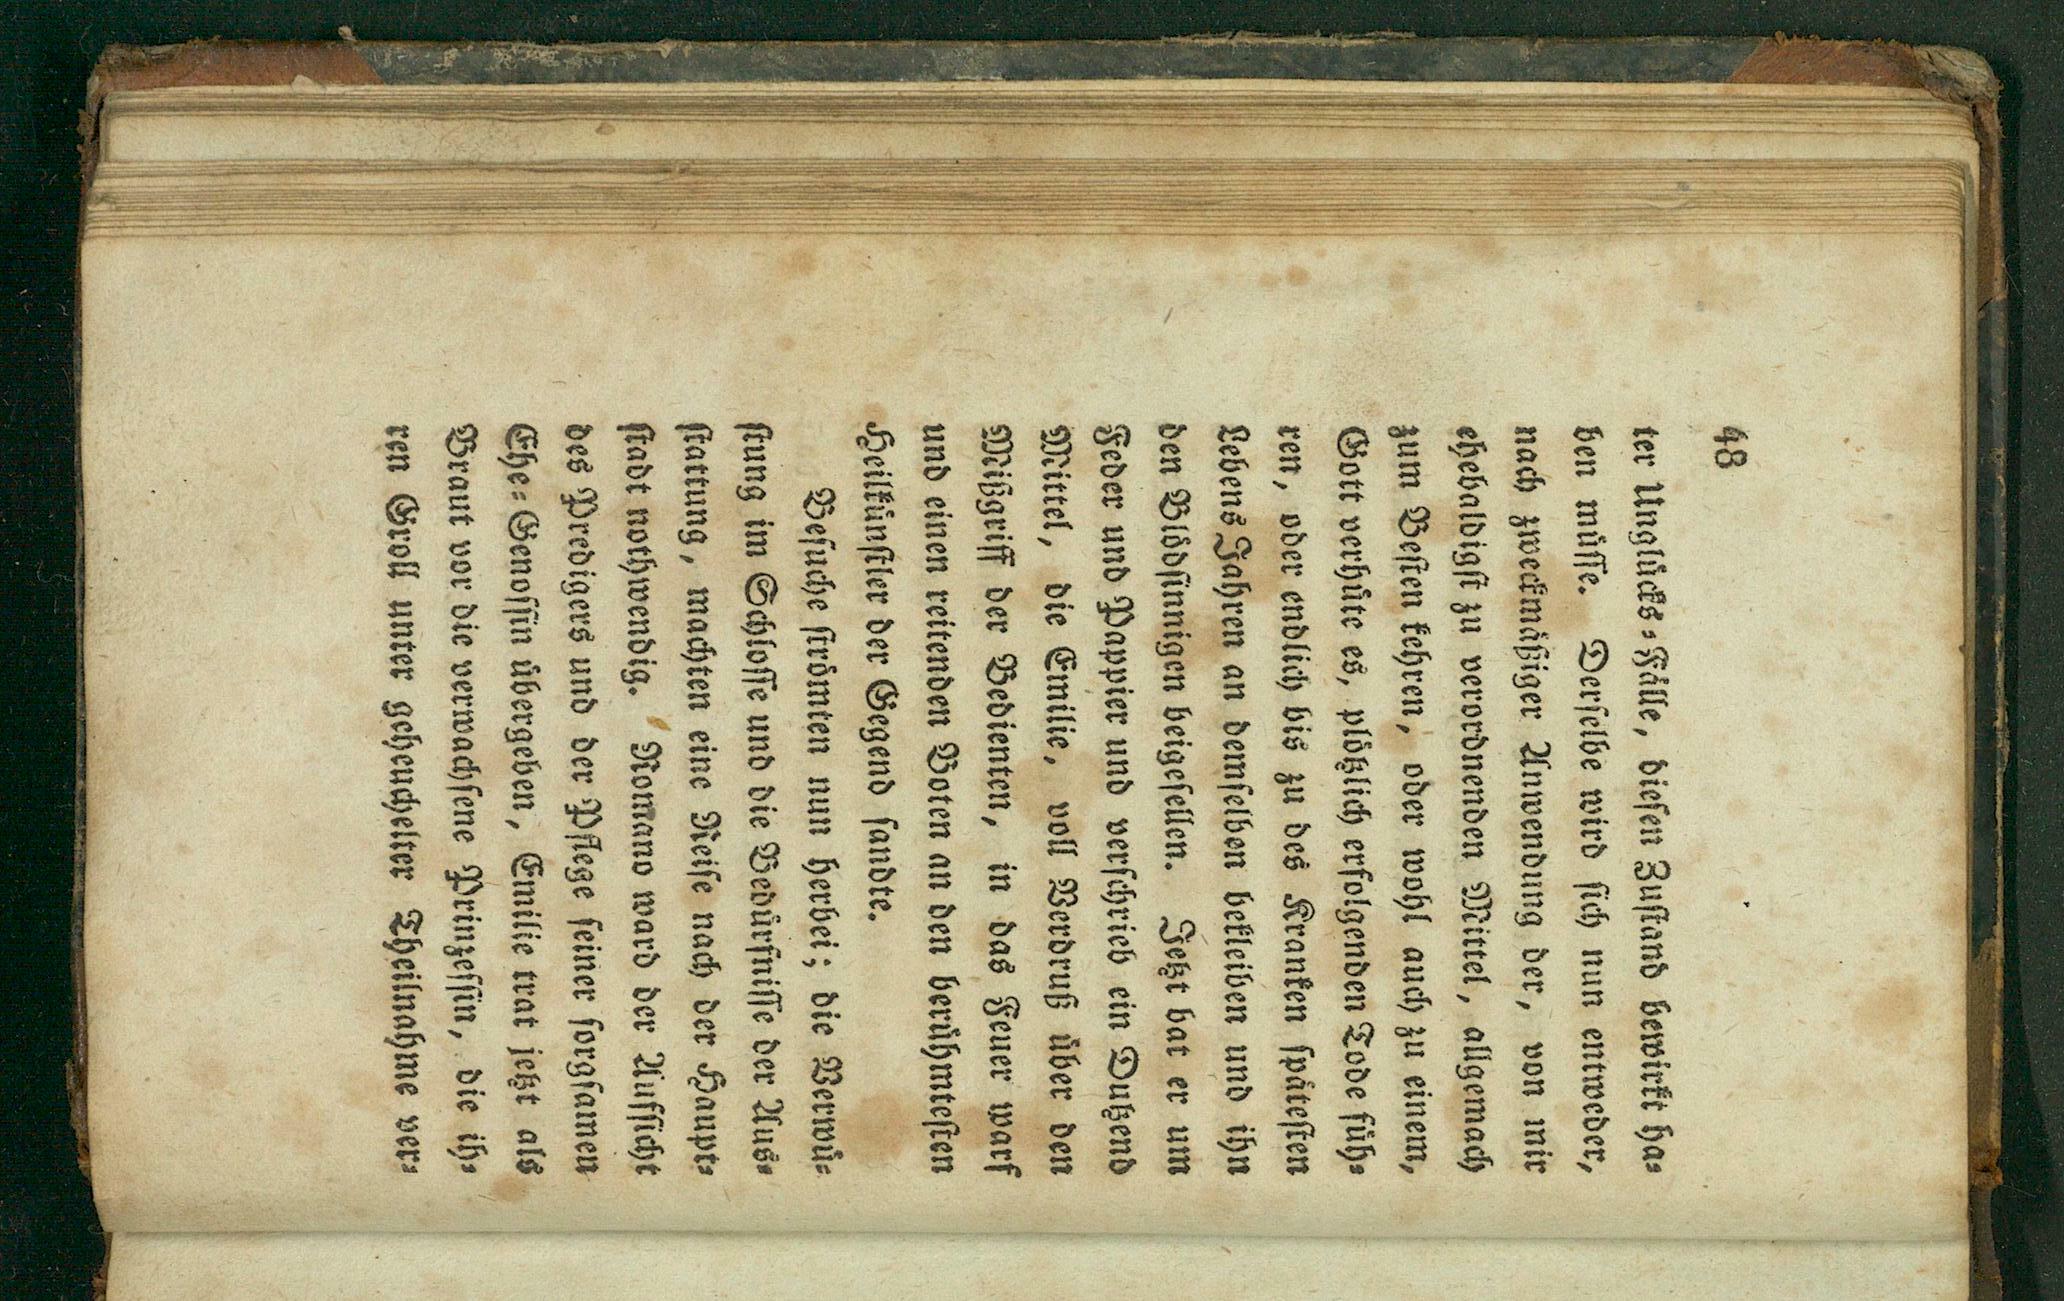 48
ter Unglücks-Fälle, diesen Zustand bewirkt ha-
ben müsse. Derselbe wird sich nun entweder,
nach zweckmäßiger Anwendung der, von mir
ehebaldigst zu verordnenden Mittel, allgemach
zum Besten kehren, oder wohl auch zu einem,
Gott verhüte es, plötzlich erfolgenden Tode füh-
ren, oder endlich bis zu des Kranken spätesten
Lebens Jahren an demselben bekleiben und ihn
den Blödsinnigen beigesellen. Jetzt bat er um
Feder und Pappier und verschrieb ein Dutzend
Mittel, die Emilie, voll Verdruß über den
Mißgriff der Bedienten, in das Feuer warf
und einen reitenden Boten an den berühmtesten
Heilkünstler der Gegend sandte.
Besuche strömten nun herbei; die Verwü-
stung im Schlosse und die Bedürfnisse der Aus-
stattung, machten eine Reise nach der Haupt-
stadt nothwendig. Romano ward der Aufsicht
des Predigers und der Pflege seiner sorgsamen
Ehe-Genossin übergeben, Emilie trat jetzt als
Braut vor die verwachsene Prinzessin, die ih-
ren Groll unter geheuchelter Theilnahme ver-